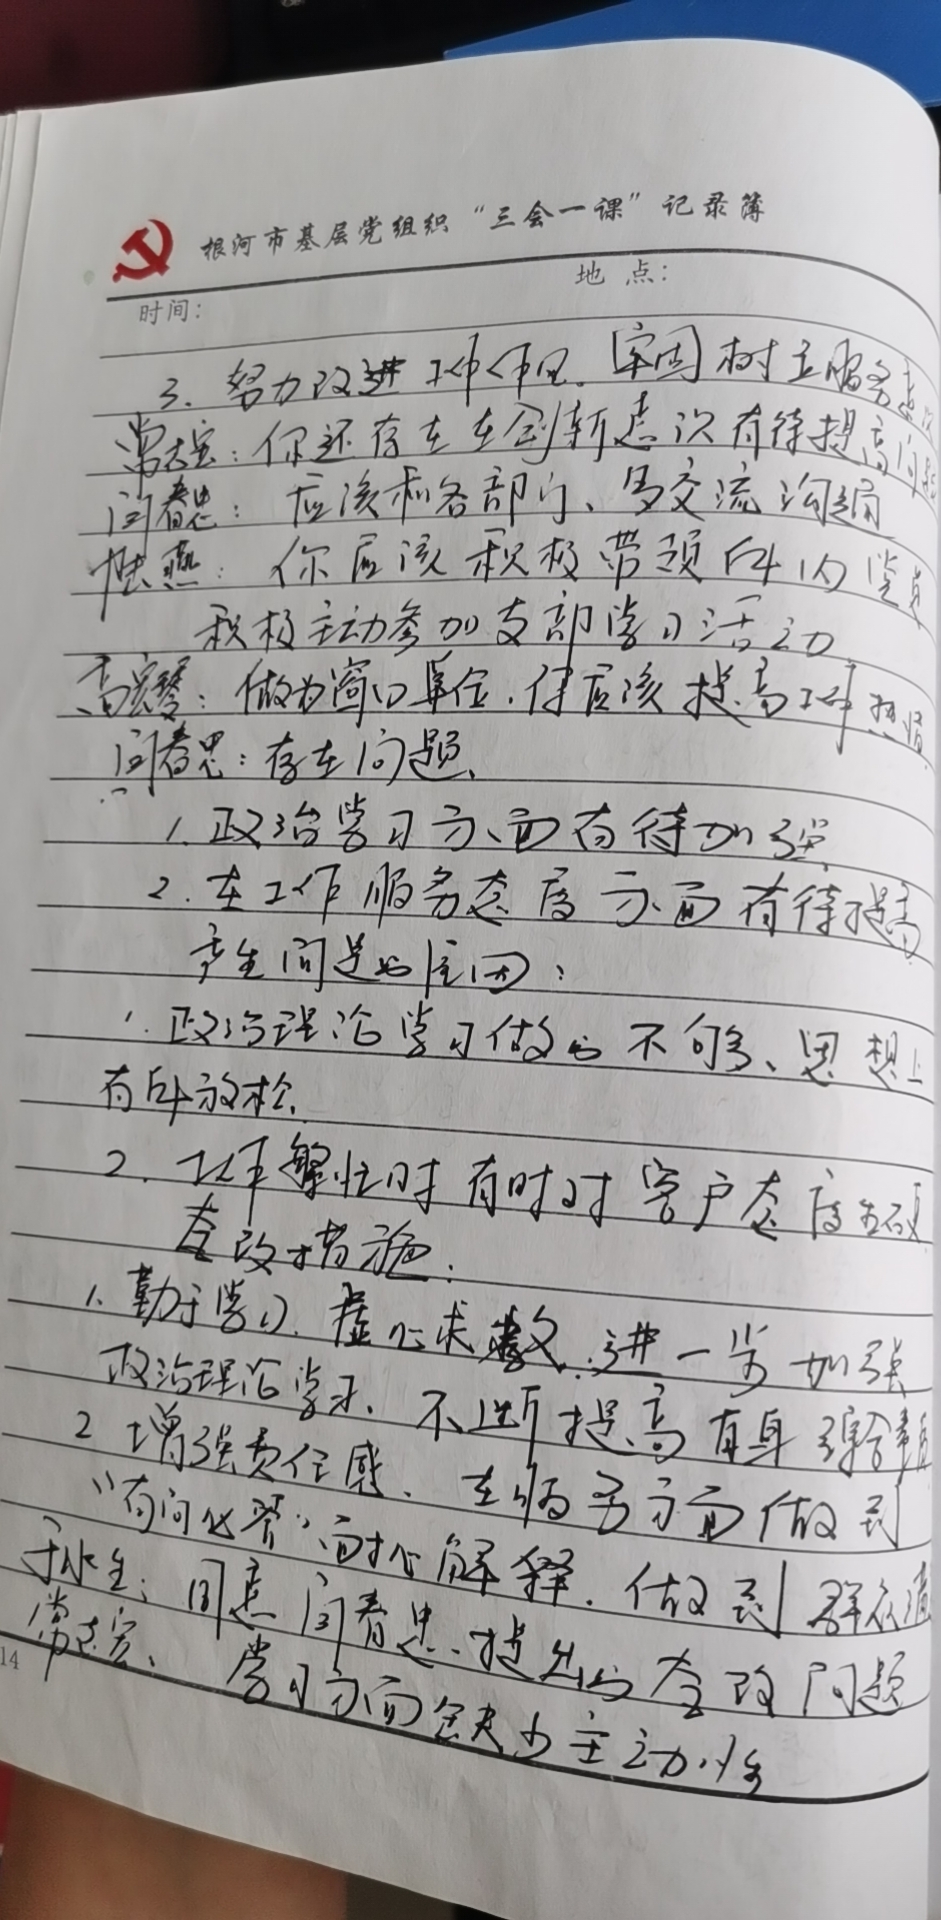 根河市基层党组织“三会一课”记录簿
时间: 地点:
3、努力改进工作作风。牢固树立服务意识
常志宏：你还存在在创新意识有待提高问题
闫春思：应该和各部门、多交流沟通
燕：你应该积极带领所内党员
积极主动参加支部学习活动
高琴：做为窗口单位，你应该提高工作热情
闫春思：存在问题、
1、政治学习方面有待加强、
2、在工作服务态度方面有待提高
产生问题的原因：
1、政治理论学习做的不够、思想上
有所放松、
2、工作繁忙时有时对客户态度生硬
整改措施：
1、勤于学习、虚心求教、进一步加强
政治理论学习、不断提高自身综合素质
2 增强责任感、在服务方面做到
“有问必答”、耐心解释、做到群众满
：同意闫春思、提出的整改问题
常志宏、学习方面缺少主动性
14